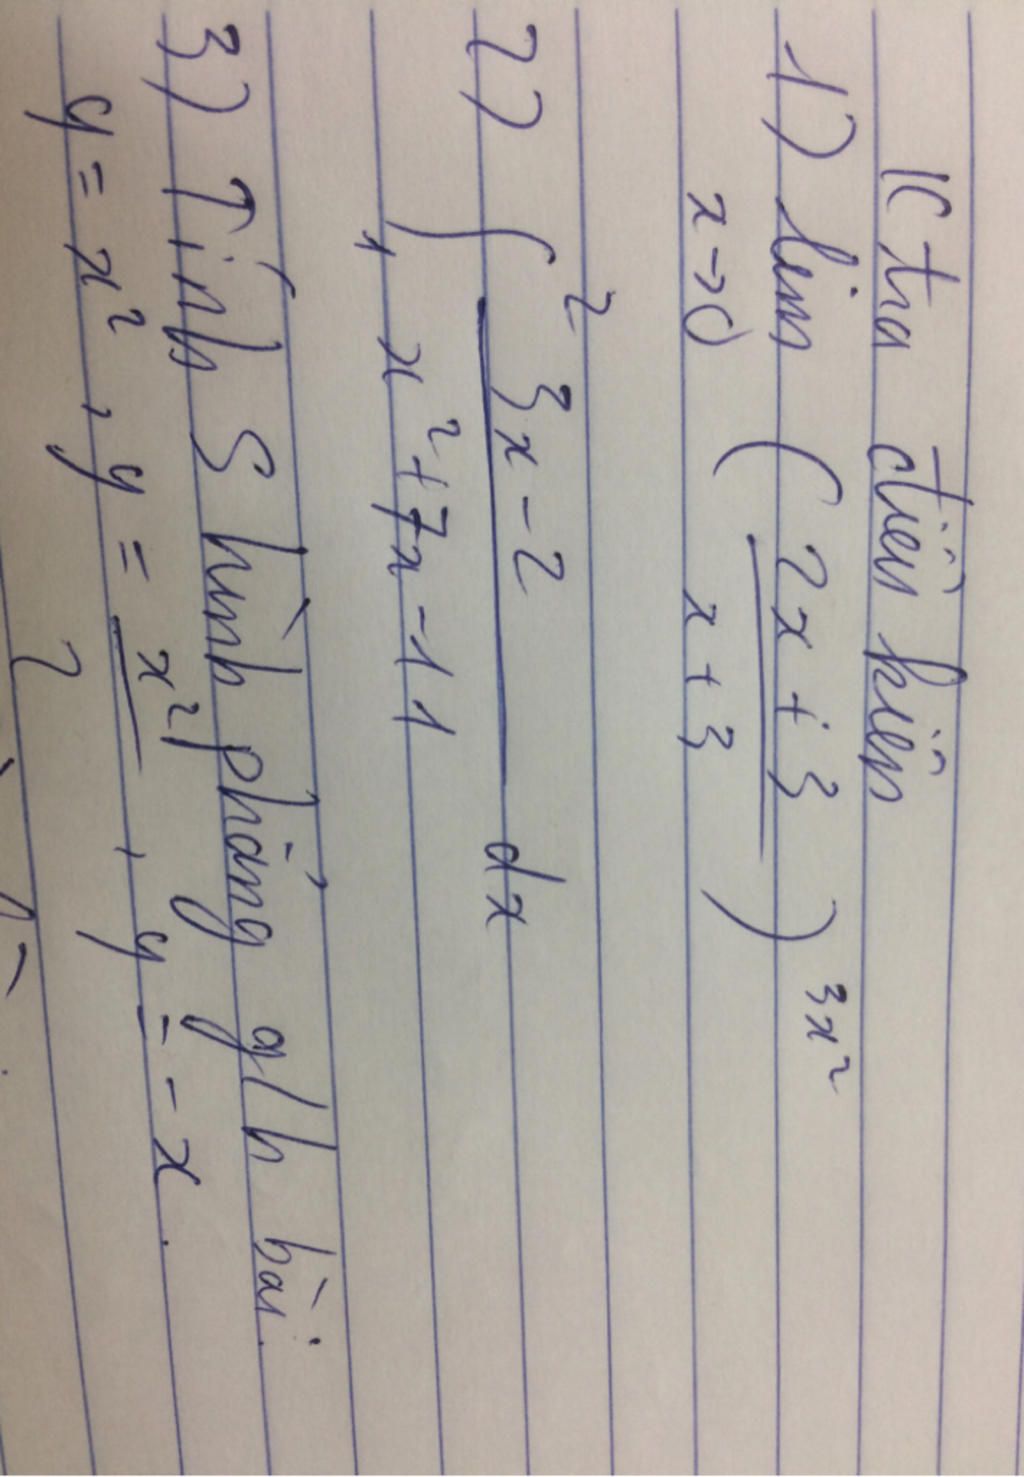 Ktra điều kiện
1) lim ( 2x + 3 / x + 3 ) 3x²
x→0
2) ∫ 2 1 3x - 2 / x² + 7x - 11 dx
3) Tính S hình phẳng g/h bài
y = x² , y = x² / 2 , y = - x .